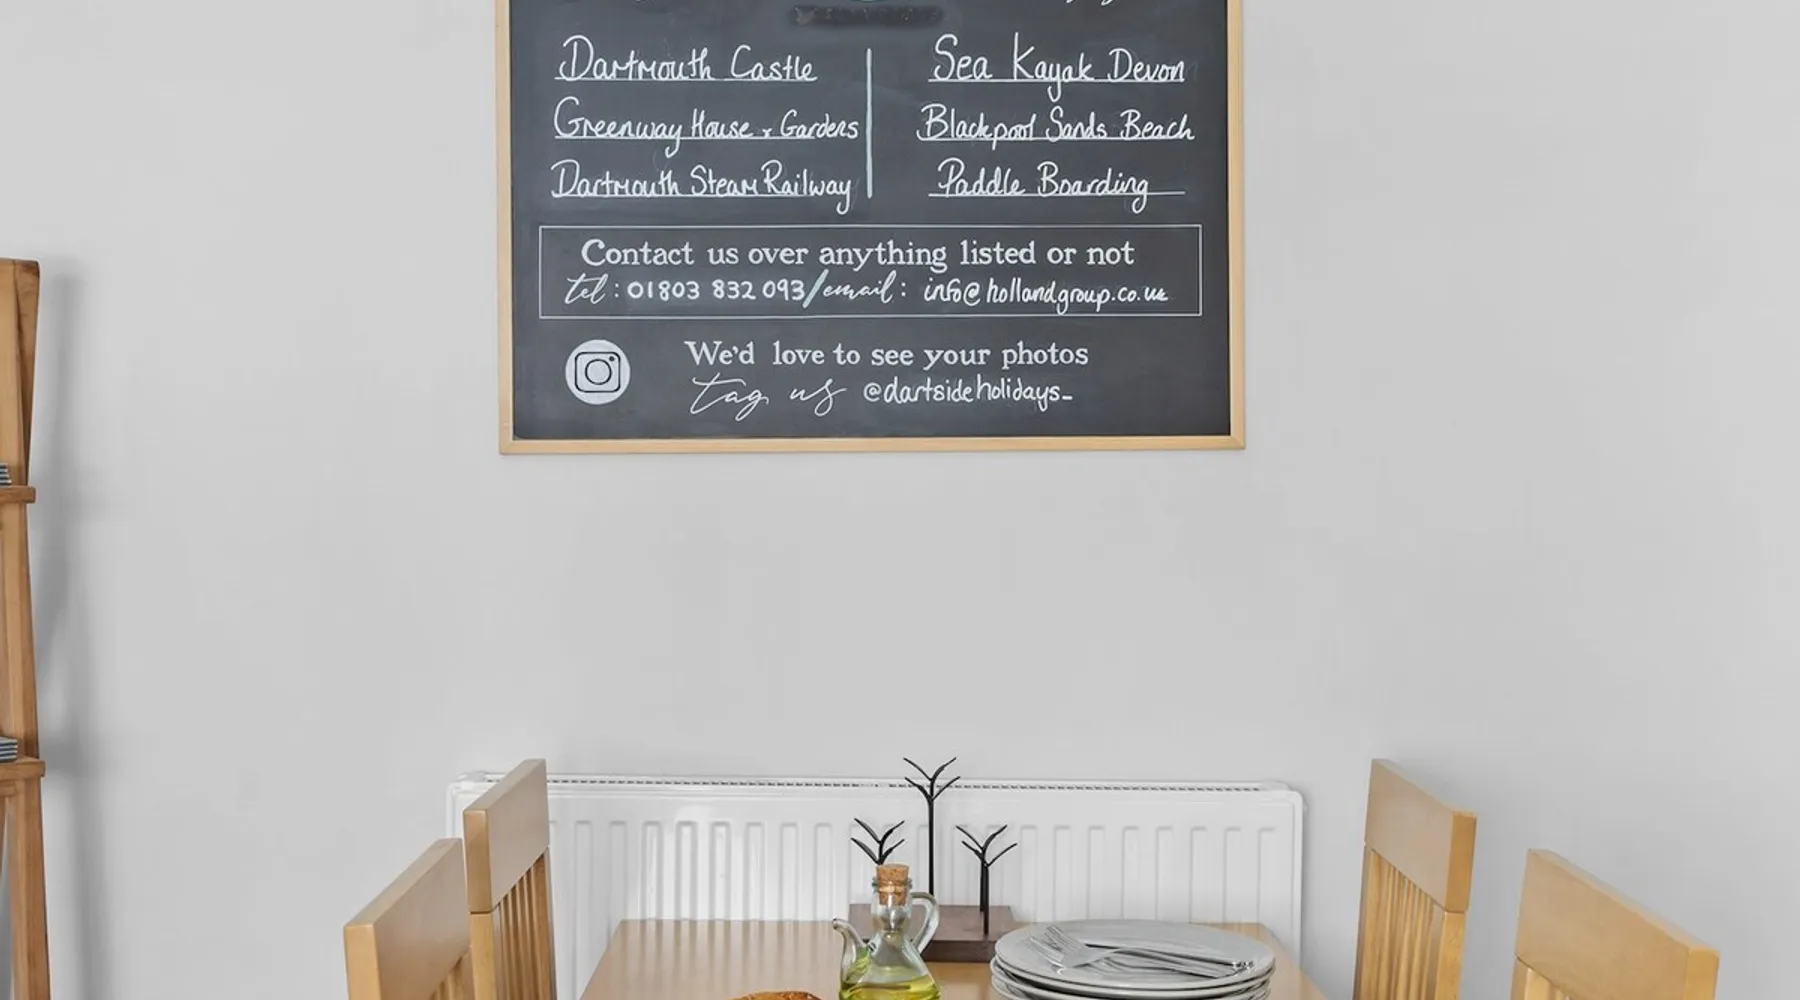 Dartmouth Castle
Greenway House & Gardens
Dartmouth Steam Railway
Sea Kayak Devon
Blackpool Sands Beach
Paddle Boarding
Contact us over anything listed or not
tel: 01803 832 093/email: info@hollandgroup.co.uk
We'd love to see your photos
tag us @dartsideholidays_